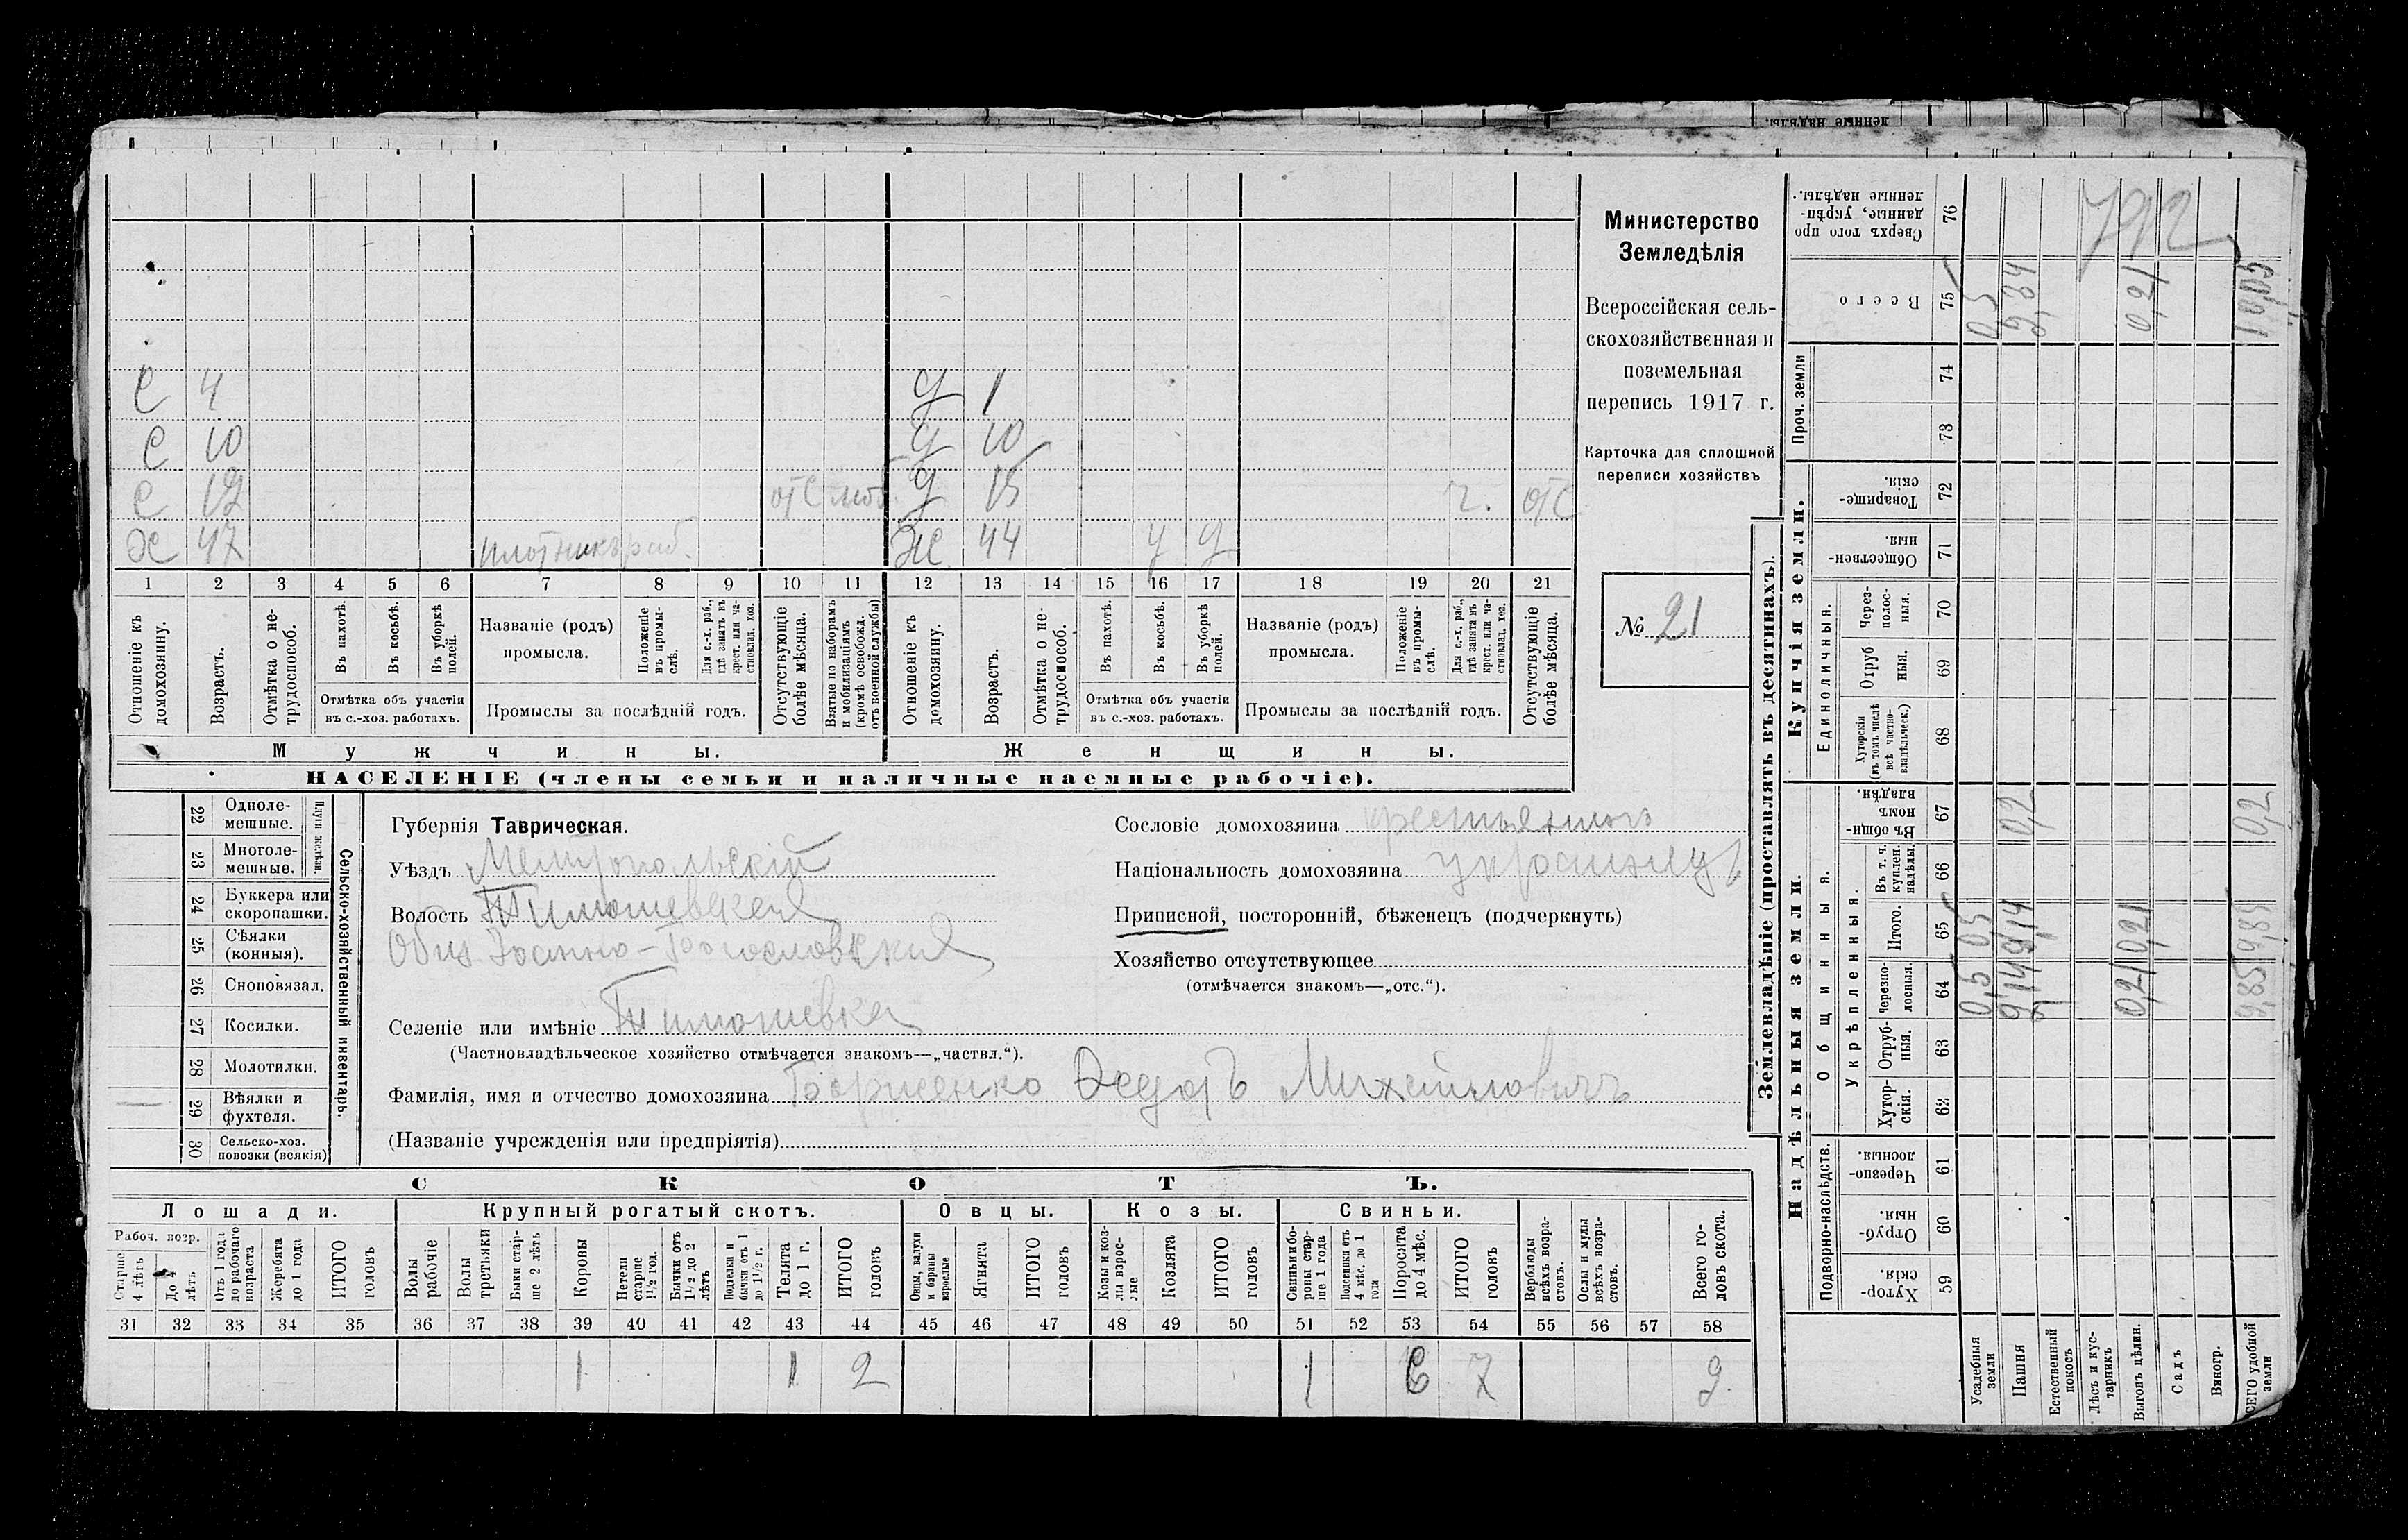 С 4 д 1
С 10 д 10
С 19 отс моб. д 15 г. отс
Х 47 плотникъ раб. Ж 44 у у
1 2 3 4 5 6 7 8 9 10 11 12 13 14 15 16 17 18 19 20 21
Отношеніе къ домохозяину.
Возрастъ.
Отмѣтка о нетрудоспособ.
Въ пахотѣ.
Въ косьбѣ.
Въ уборкѣ полей.
Отмѣтка объ участіи въ с.-хоз. работахъ.
Названіе (родъ) промысла.
Положеніе въ промыслѣ.
Для с.-х. раб., гдѣ занятъ въ крест. или частновлад. хоз.
Промыслы за послѣдній годъ.
Отсутствующіе болѣе мѣсяца.
Взятые по наборамъ и мобилизаціямъ (кромѣ освобожд. отъ военной службы)
Отношеніе къ домохозяину.
Возрастъ.
Отмѣтка о нетрудоспособ.
Въ пахотѣ.
Въ косьбѣ.
Въ уборкѣ полей.
Отмѣтка объ участіи въ с.-хоз. работахъ.
Названіе (родъ) промысла.
Положеніе въ промыслѣ.
Для с.-х. раб., гдѣ занята въ крест. или частновлад. хоз.
Промыслы за послѣдній годъ.
Отсутствующіе болѣе мѣсяца.
Мужчины. Женщины.
НАСЕЛЕНІЕ (члены семьи и наличные наемные рабочіе).
Министерство
Земледѣлія
Всероссійская сель-
скохозяйственная и
поземельная
перепись 1917 г.
Карточка для сплошной
переписи хозяйствъ
№ 21
Сельско-хозяйственный инвентарь.
Плуги желѣзн.
22 Одноле-
мешные.
23 Многоле-
мешные.
24 Буккера или
скоропашки.
25 Сѣялки
(конныя).
26 Сноповязал.
27 Косилки.
28 Молотилки.
— 29 Вѣялки и
фухтеля.
30 Сельско-хоз.
повозки (всякія)
Губернія Таврическая.
Уѣздъ Мелитопольскій
Волость Тимошевская
Общ. Іоанно-Богословская
Селеніе или имѣніе Тимошевка
(Частновладѣльческое хозяйство отмѣчается знакомъ—„частвл.“).
Фамилія, имя и отчество домохозяина Борженко Ѳедоръ Михайловичъ
(Названіе учрежденія или предпріятія)
Сословіе домохозяина крестьянинъ
Національность домохозяина украинцъ
Приписной, посторонній, бѣженецъ (подчеркнуть)
Хозяйство отсутствующее
(отмѣчается знакомъ—„отс.“).
СКОТЪ.
Лошади. Крупный рогатый скотъ. Овцы. Козы. Свиньи.
Рабоч. возр.
Старше 4 лѣтъ
До 4 лѣтъ
Отъ 1 года до рабочаго возраста
Жеребята до 1 года
ИТОГО головъ
Волы рабочіе
Волы третьяки
Быки старше 2 лѣтъ
Коровы
Нетели старше 1½ год.
Бычки отъ 1½ до 2 лѣтъ
Подтелки и бычки отъ 1 до 1½ г.
Телята до 1 г.
ИТОГО головъ
Овцы, валухи и бараны взрослые
Ягнята
ИТОГО головъ
Козы и козлы взрослые
Козлята
ИТОГО головъ
Свиньи и боровы старше 1 года
Подсвинки отъ 4 мѣс. до 1 года
Поросята до 4 мѣс.
ИТОГО головъ
Верблюды всѣхъ возрастовъ.
Ослы и мулы всѣхъ возрастовъ.
Всего головъ скота.
31 32 33 34 35 36 37 38 39 40 41 42 43 44 45 46 47 48 49 50 51 52 53 54 55 56 57 58
1 1 2 1 6 7 9
Землевладѣніе (проставлять въ десятинахъ).
Надѣльныя земли. Купчія земли. Проч. земли
Подворно-наслѣдств. Общинныя. Единоличныя.
Укрѣпленныя.
59 Хуторскія.
60 Отрубныя.
61 Черезполосныя.
62 Хуторскія.
63 Отрубныя.
64 Черезполосныя.
65 Итого.
66 Въ т. ч. куплен. надѣлы.
67 Въ общинномъ владѣн.
68 Хуторскія (въ томъ числѣ всѣ частновладѣльческ.)
69 Отрубныя.
70 Черезполосныя.
71 Общественныя.
72 Товарищескія.
73
74
75 Всего
76 Сверхъ того проданные, укрѣпленные надѣлы.
Усадебныя земли 0,5 0,5 0,5
Пашня 9,14 9,14 0,2 9,34
Естественный покосъ
Лѣсъ и кустарникъ
Выгонъ цѣлин. 0,21 0,21 0,21
Садъ
Виногр.
ВСЕГО удобной земли 9,85 9,85 0,2 10,05
792